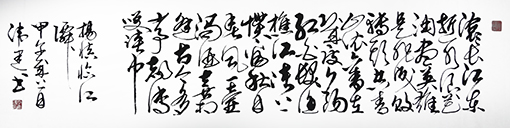 滚滚长江东
逝水浪花
淘尽英雄
是非成败
转头空青
山依旧在几
度夕阳
红白发渔
樵江渚上
惯看秋月
春风一壶
浊酒喜相
逢古今多
少事都付
笑谈中
楊慎临江
僊
甲午年八月
书